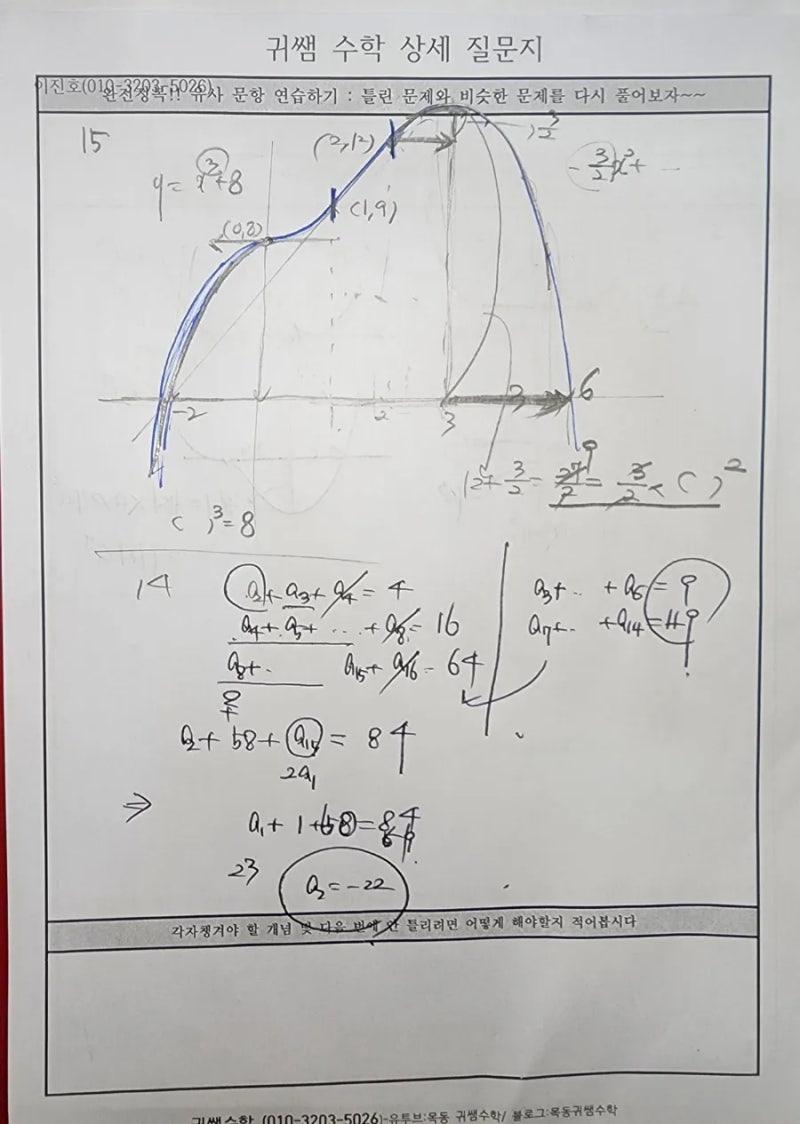 귀쌤 수학 상세 질문지
이진호(010-3203-5026)
완전정복!! 유사 문항 연습하기 : 틀린 문제와 비슷한 문제를 다시 풀어보자~~
15
(2,12)
3/2
-3/2 x³+ ...
y = x³+8
(1,9)
(0,8)
-2
2
3
3
6
12+3/2 = 27/2 = 3/2 × ( )²
9
( )³ = 8
14
a₂+a₃+a₄ = 4
a₄+a₅+ ... +a₈ = 16
a₈+.. a₁₅+a₁₆ = 64
a₃+.. +a₆ = 9
a₇+.. +a₁₄ = 49
a₂+58+a₁₅ = 84
2a₁
⇒
a₁+1+58=84
23
a₂ = -22
각자챙겨야 할 개념 및 다음 번에 안 틀리려면 어떻게 해야할지 적어봅시다
귀쌤수학 (010-3203-5026)-유투브:목동 귀쌤수학/ 블로그:목동귀쌤수학